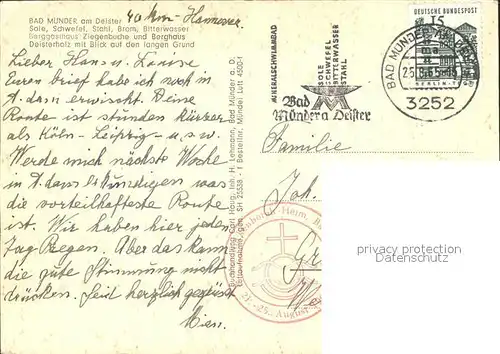 BAD MÜNDER am Deister
40 km - Hannover
Sole, Schwefel, Stahl, Brom, Bitterwasser
Berggasthaus Ziegenbuche und Berghaus
Deisterholz mit Blick auf den langen Grund
Lieber Hans u. Louise
Euren brief habe ich noch in
A.dam erwischt. Deine
Route ist stunden kürzer
als Köln - Leipzig - u.s.w.
Werde mich nächste Woche
in A.dam erkundigen was
die vorteilhafteste Route
ist. Wir haben hier jeden
Tag Regen. Aber das kann
die gute Stimmung nicht
drücken. Seid herzlich gegrüsst
Wien.
Buchhandlung Carl Hanig, Inh. H. Lehmann, Bad Münder a. D.
SH 25538 - 1 Bestellnr. Münder Luft 4500-1
MINERALSCHWIMMBAD
SOLE
SCHWEFEL
BITTERWASSER
STAHL
Bad
Münder a Deister
DEUTSCHE BUNDESPOST
15
BAD MÜNDER AM DEISTER
25.8.65-15
ma
3252
Familie
Joh
Gr
We
-Heim, B
21.-29. August
privat copyright
oldthing.de